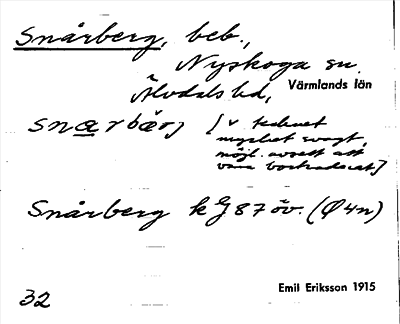 Snårberg, beb.,
Nyskoga sn.
Älvdals hd, Värmlands län
snarbärj [v tecknet
mycket svagt,
möjl. avsett att
vara bortraderat]
Snårberg k G 87 öv. (Ø 4n)
32
Emil Eriksson 1915